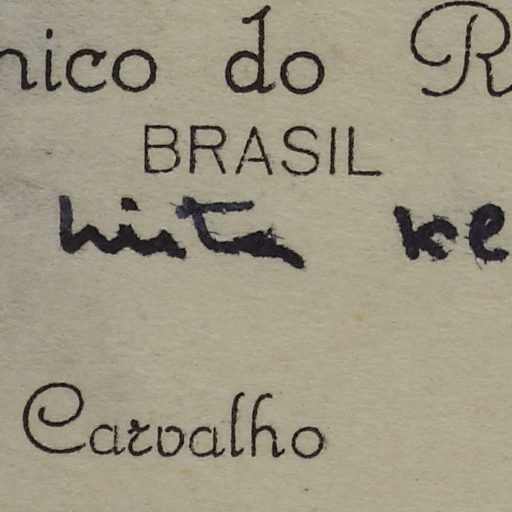 nico do R
BRASIL
Carvalho